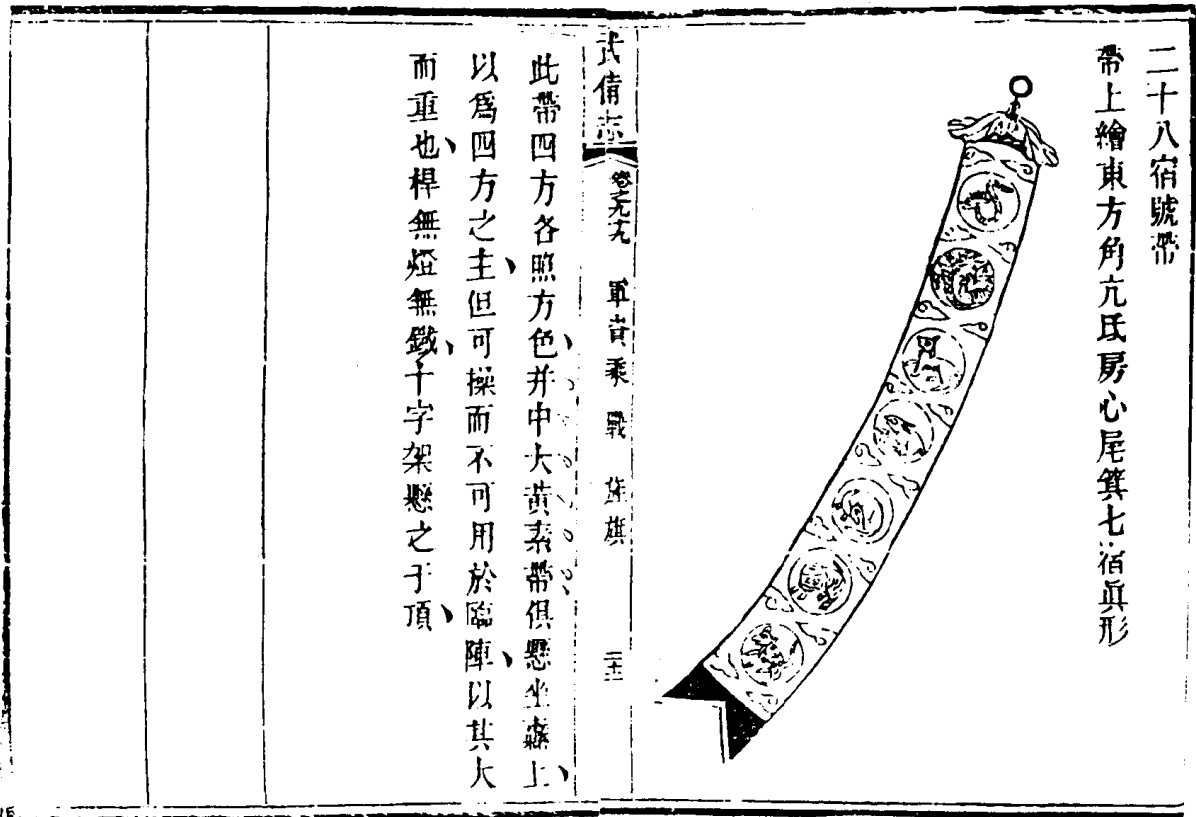 二十八宿號帶
帶上繪東方角亢氐房心尾箕七宿眞形
武備志 卷之九十九 軍資乘 戰 旌旗 二十二
此帶四方各照方色并中大黃素帶俱懸坐纛上
以爲四方之主但可操而不可用於臨陣以其大
而重也桿無燈無鐵十字架懸之于頂